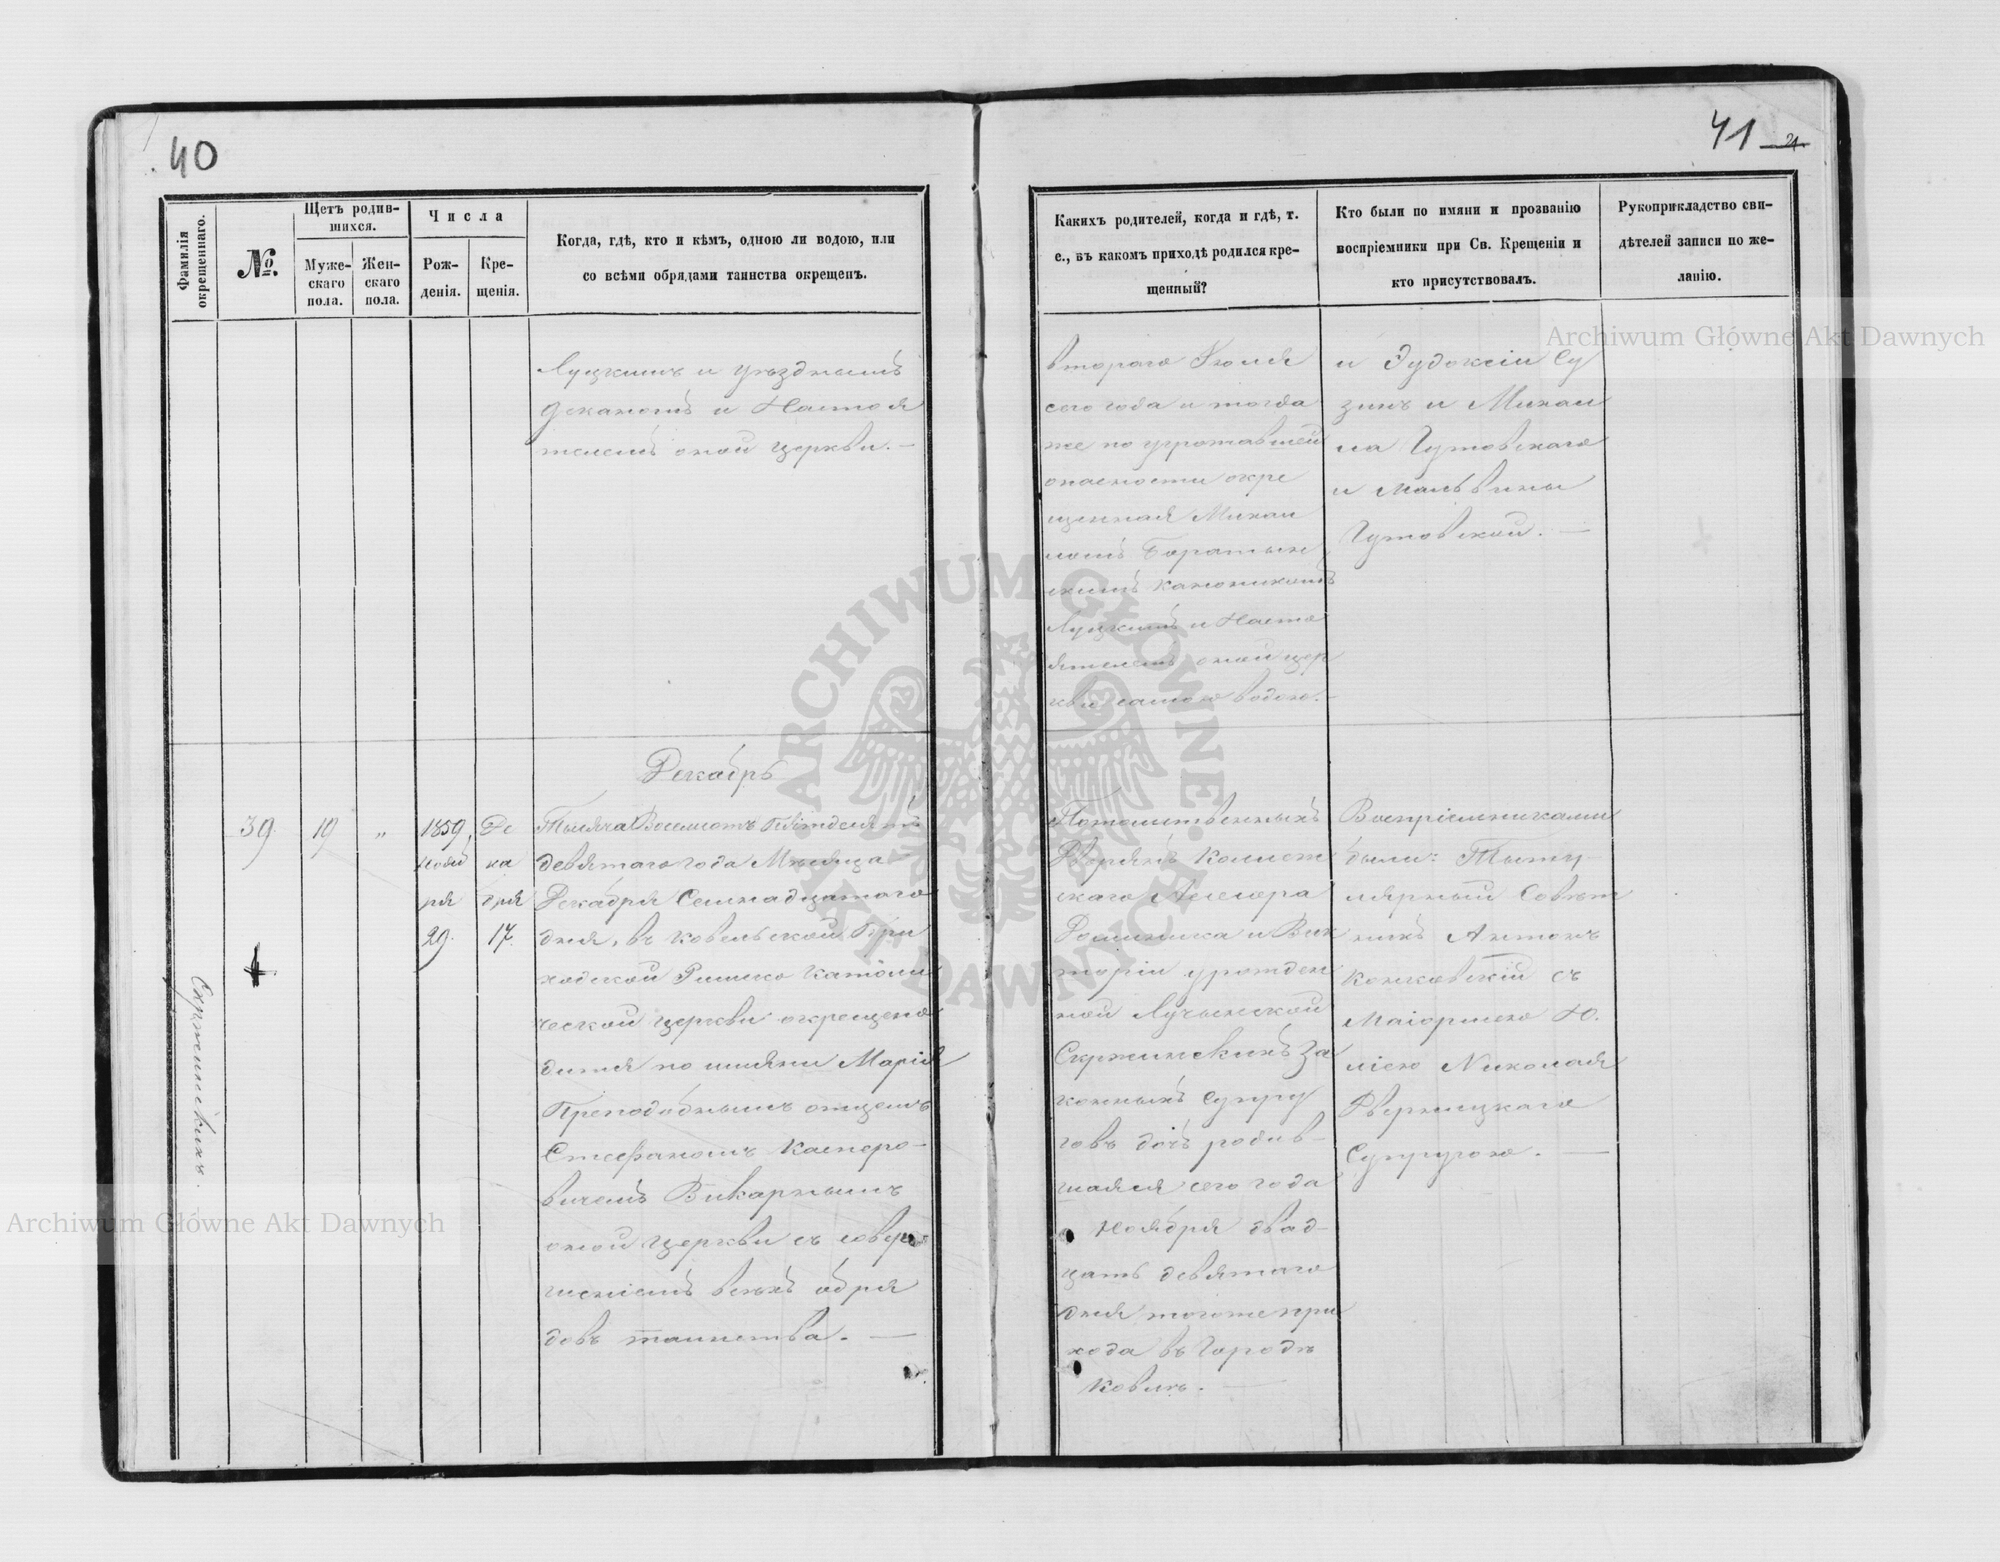 40
Фамилія окрещеннаго.
№.
Щетъ родив-
шихся.
Муже-
скаго
пола.
Жен-
скаго
пола.
Числа
Рож-
денія.
Кре-
щенія.
Когда, гдѣ, кто и кѣмъ, одною ли водою, или
со всѣми обрядами таинства окрещенъ.
Луцкимъ и Уѣзднымъ
Деканомъ и Настоя
телемъ оной Церкви. —
Декабрь
39.
19
„
1859
Нояб
ря
29.
Де
ка
бря
17.
Скржинскихъ.
Тысяча Восемсотъ Пятдесятъ
девятаго года Мѣсяца
Декабря Семнадцатого
дня, въ Ковельской При
ходской Римско Католи
ческой Церкви окрещено
дитя по имяни Марія
Преподобнымъ отцемъ
Стефаномъ Касперо-
вичемъ Викарнымъ
оной Церкви съ совер
шеніемъ всѣхъ обря
довъ таинства. —
41
21
Какихъ родителей, когда и гдѣ, т.
е., въ какомъ приходѣ родился кре-
щенный?
Кто были по имяни и прозванію
воспріемники при Св. Крещеніи и
кто присутствовалъ.
Рукоприкладство сви-
дѣтелей записи по же-
ланію.
втораго Іюля
сего года и тогда
же по угрожавшей
опасности окре
щенная Михаи
ломъ Баратын
скимъ Каноникомъ
Луцкимъ и Насто
ятелемъ оной цер
кви самою водою. —
и Эудоксіи Су
зинъ и Михаи
ла Гутовскаго
и Мальвины
Гутовской. —
Потомственныхъ
Дворянъ Коллеж
скаго Асесора
Доминика и Вик
торіи урожден
ной Лучинской
Скржинскихъ за
конныхъ Супру
говъ дочь родив-
шаяся сего года
Ноября двад-
цать девятаго
дня тогоже при
хода въ Городѣ
Ковлѣ. —
Воспріемниками
были: Титу-
лярный Совѣт
никъ Антонъ
Конковскій съ
Маіоршею Ю.
ліею Николая
Дверницкаго
Супругою. —
Archiwum Główne Akt Dawnych
Archiwum Główne Akt Dawnych
ARCHIWUM GŁÓWNE AKT DAWNYCH